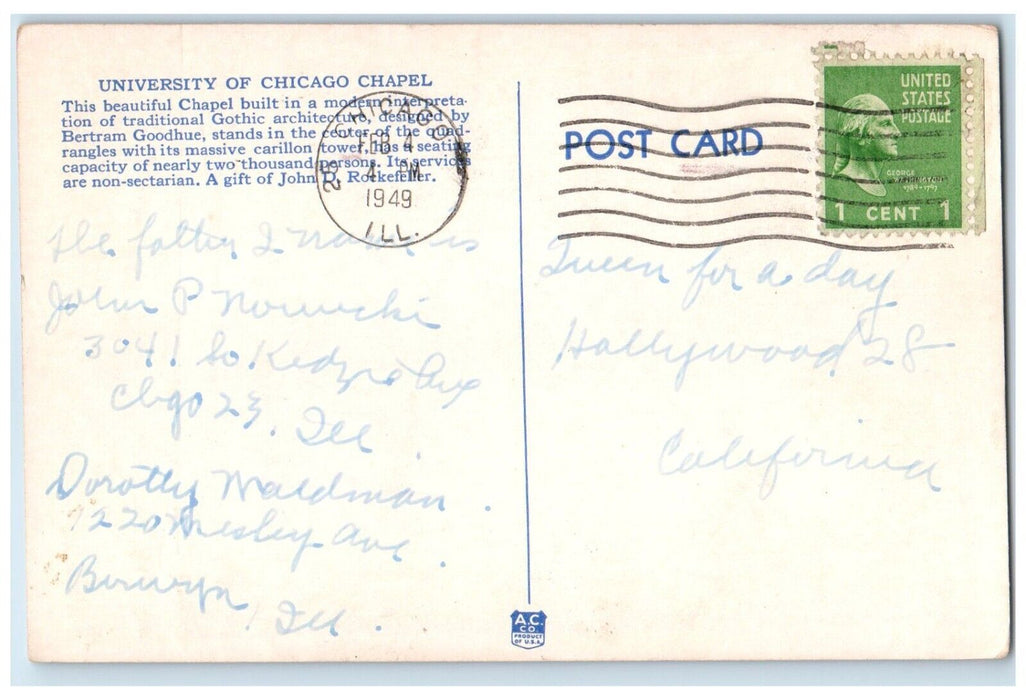 UNIVERSITY OF CHICAGO CHAPEL
This beautiful Chapel built in a modern interpreta-
tion of traditional Gothic architecture, designed by
Bertram Goodhue, stands in the center of the quad-
rangles with its massive carillon tower, has a seating
capacity of nearly two thousand persons. Its services
are non-sectarian. A gift of John D. Rockefeller.
CHICAGO
FEB 4
4 PM
1949
ILL.
POST CARD
UNITED
STATES
POSTAGE
GEORGE
WASHINGTON
1789-1797
1 CENT 1
The I is
John P Nowicki
3041 So Kedzie Ave
Chgo 23, Ill
Dorothy Waldman
Ave
Berwyn, Ill.
Queen for a day
Hollywood 28
California
A.C.
CO.
PRODUCT
OF U.S.A.